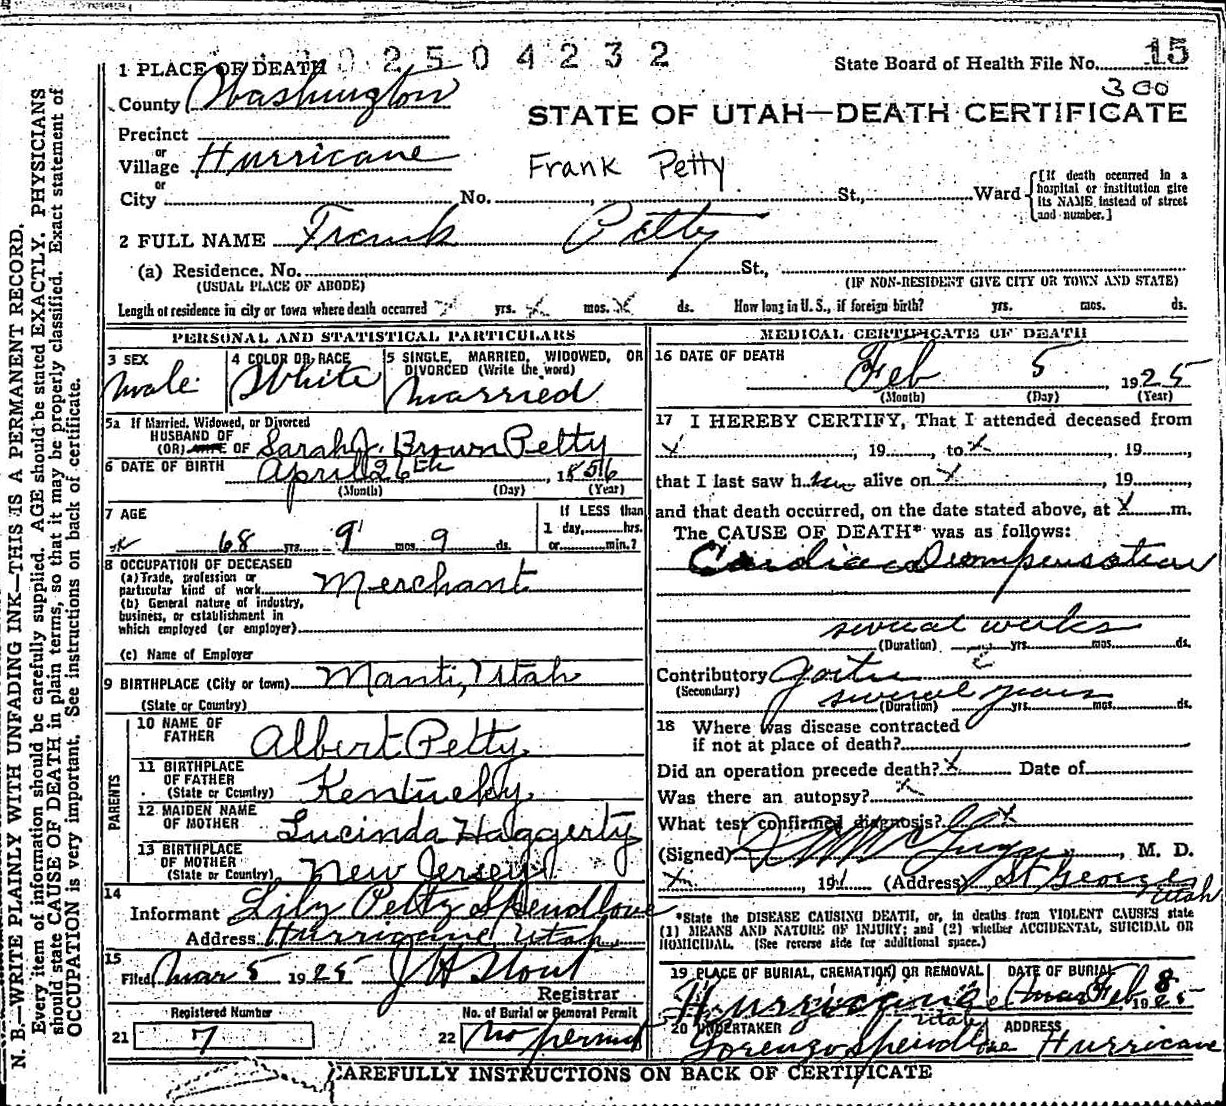 02504232
State Board of Health File No. 15
300
1 PLACE OF DEATH
County Washington
STATE OF UTAH—DEATH CERTIFICATE
Precinct
or
Village Hurricane
Frank Petty
or
City No. St., Ward
[If death occurred in a hospital or institution give its NAME instead of street and number.]
2 FULL NAME Frank Petty
(a) Residence. No. St.,
(USUAL PLACE OF ABODE) (IF NON-RESIDENT GIVE CITY OR TOWN AND STATE)
Length of residence in city or town where death occurred x yrs. x mos. x ds. How long in U.S., if foreign birth? yrs. mos. ds.
PERSONAL AND STATISTICAL PARTICULARS
3 SEX male
4 COLOR OR RACE White
5 SINGLE, MARRIED, WIDOWED, OR DIVORCED (Write the word)
married
5a If Married, Widowed, or Divorced
HUSBAND OF
(OR) WIFE OF Sarah J. Brown Petty
6 DATE OF BIRTH April 26th, 1856
(Month) (Day) (Year)
7 AGE
68 yrs. 9 mos. 9 ds.
If LESS than
1 day, hrs.
or min.?
8 OCCUPATION OF DECEASED
(a) Trade, profession or
particular kind of work Merchant
(b) General nature of industry,
business, or establishment in
which employed (or employer)
(c) Name of Employer
9 BIRTHPLACE (City or town) Manti, Utah
(State or Country)
PARENTS
10 NAME OF
FATHER Albert Petty
11 BIRTHPLACE
OF FATHER
(State or Country) Kentucky
12 MAIDEN NAME
OF MOTHER Lucinda Haggerty
13 BIRTHPLACE
OF MOTHER
(State or Country) New Jersey
14
Informant Lily Petty Spendlove
Address Hurricane Utah
15
Filed Mar 5 1925 J H Stout
Registrar
Registered Number
21 7
No. of Burial or Removal Permit
22 No permit
MEDICAL CERTIFICATE OF DEATH
16 DATE OF DEATH
Feb 5, 1925
(Month) (Day) (Year)
17 I HEREBY CERTIFY, That I attended deceased from
x, 19 to x, 19
that I last saw h alive on x, 19
and that death occurred, on the date stated above, at x m.
The CAUSE OF DEATH* was as follows:
Cardiac Decompensation
several weeks
(Duration) yrs. mos. ds.
Contributory Goitre
(Secondary) several years
(Duration) yrs. mos. ds.
18 Where was disease contracted
if not at place of death?
Did an operation precede death? x Date of
Was there an autopsy? x
What test confirmed diagnosis? x
(Signed), M. D.
x, 19 (Address) St George Utah
*State the DISEASE CAUSING DEATH, or, in deaths from VIOLENT CAUSES state
(1) MEANS AND NATURE OF INJURY; and (2) whether ACCIDENTAL, SUICIDAL OR
HOMICIDAL. (See reverse side for additional space.)
19 PLACE OF BURIAL, CREMATION, OR REMOVAL
Hurricane Utah
DATE OF BURIAL
Feb 8 1925
20 UNDERTAKER ADDRESS
Lorenzo Spendlove Hurricane
CAREFULLY INSTRUCTIONS ON BACK OF CERTIFICATE
N. B.—WRITE PLAINLY WITH UNFADING INK—THIS IS A PERMANENT RECORD.
Every item of information should be carefully supplied. AGE should be stated EXACTLY. PHYSICIANS
should state CAUSE OF DEATH in plain terms, so that it may be properly classified. Exact statement of
OCCUPATION is very important. See instructions on back of certificate.